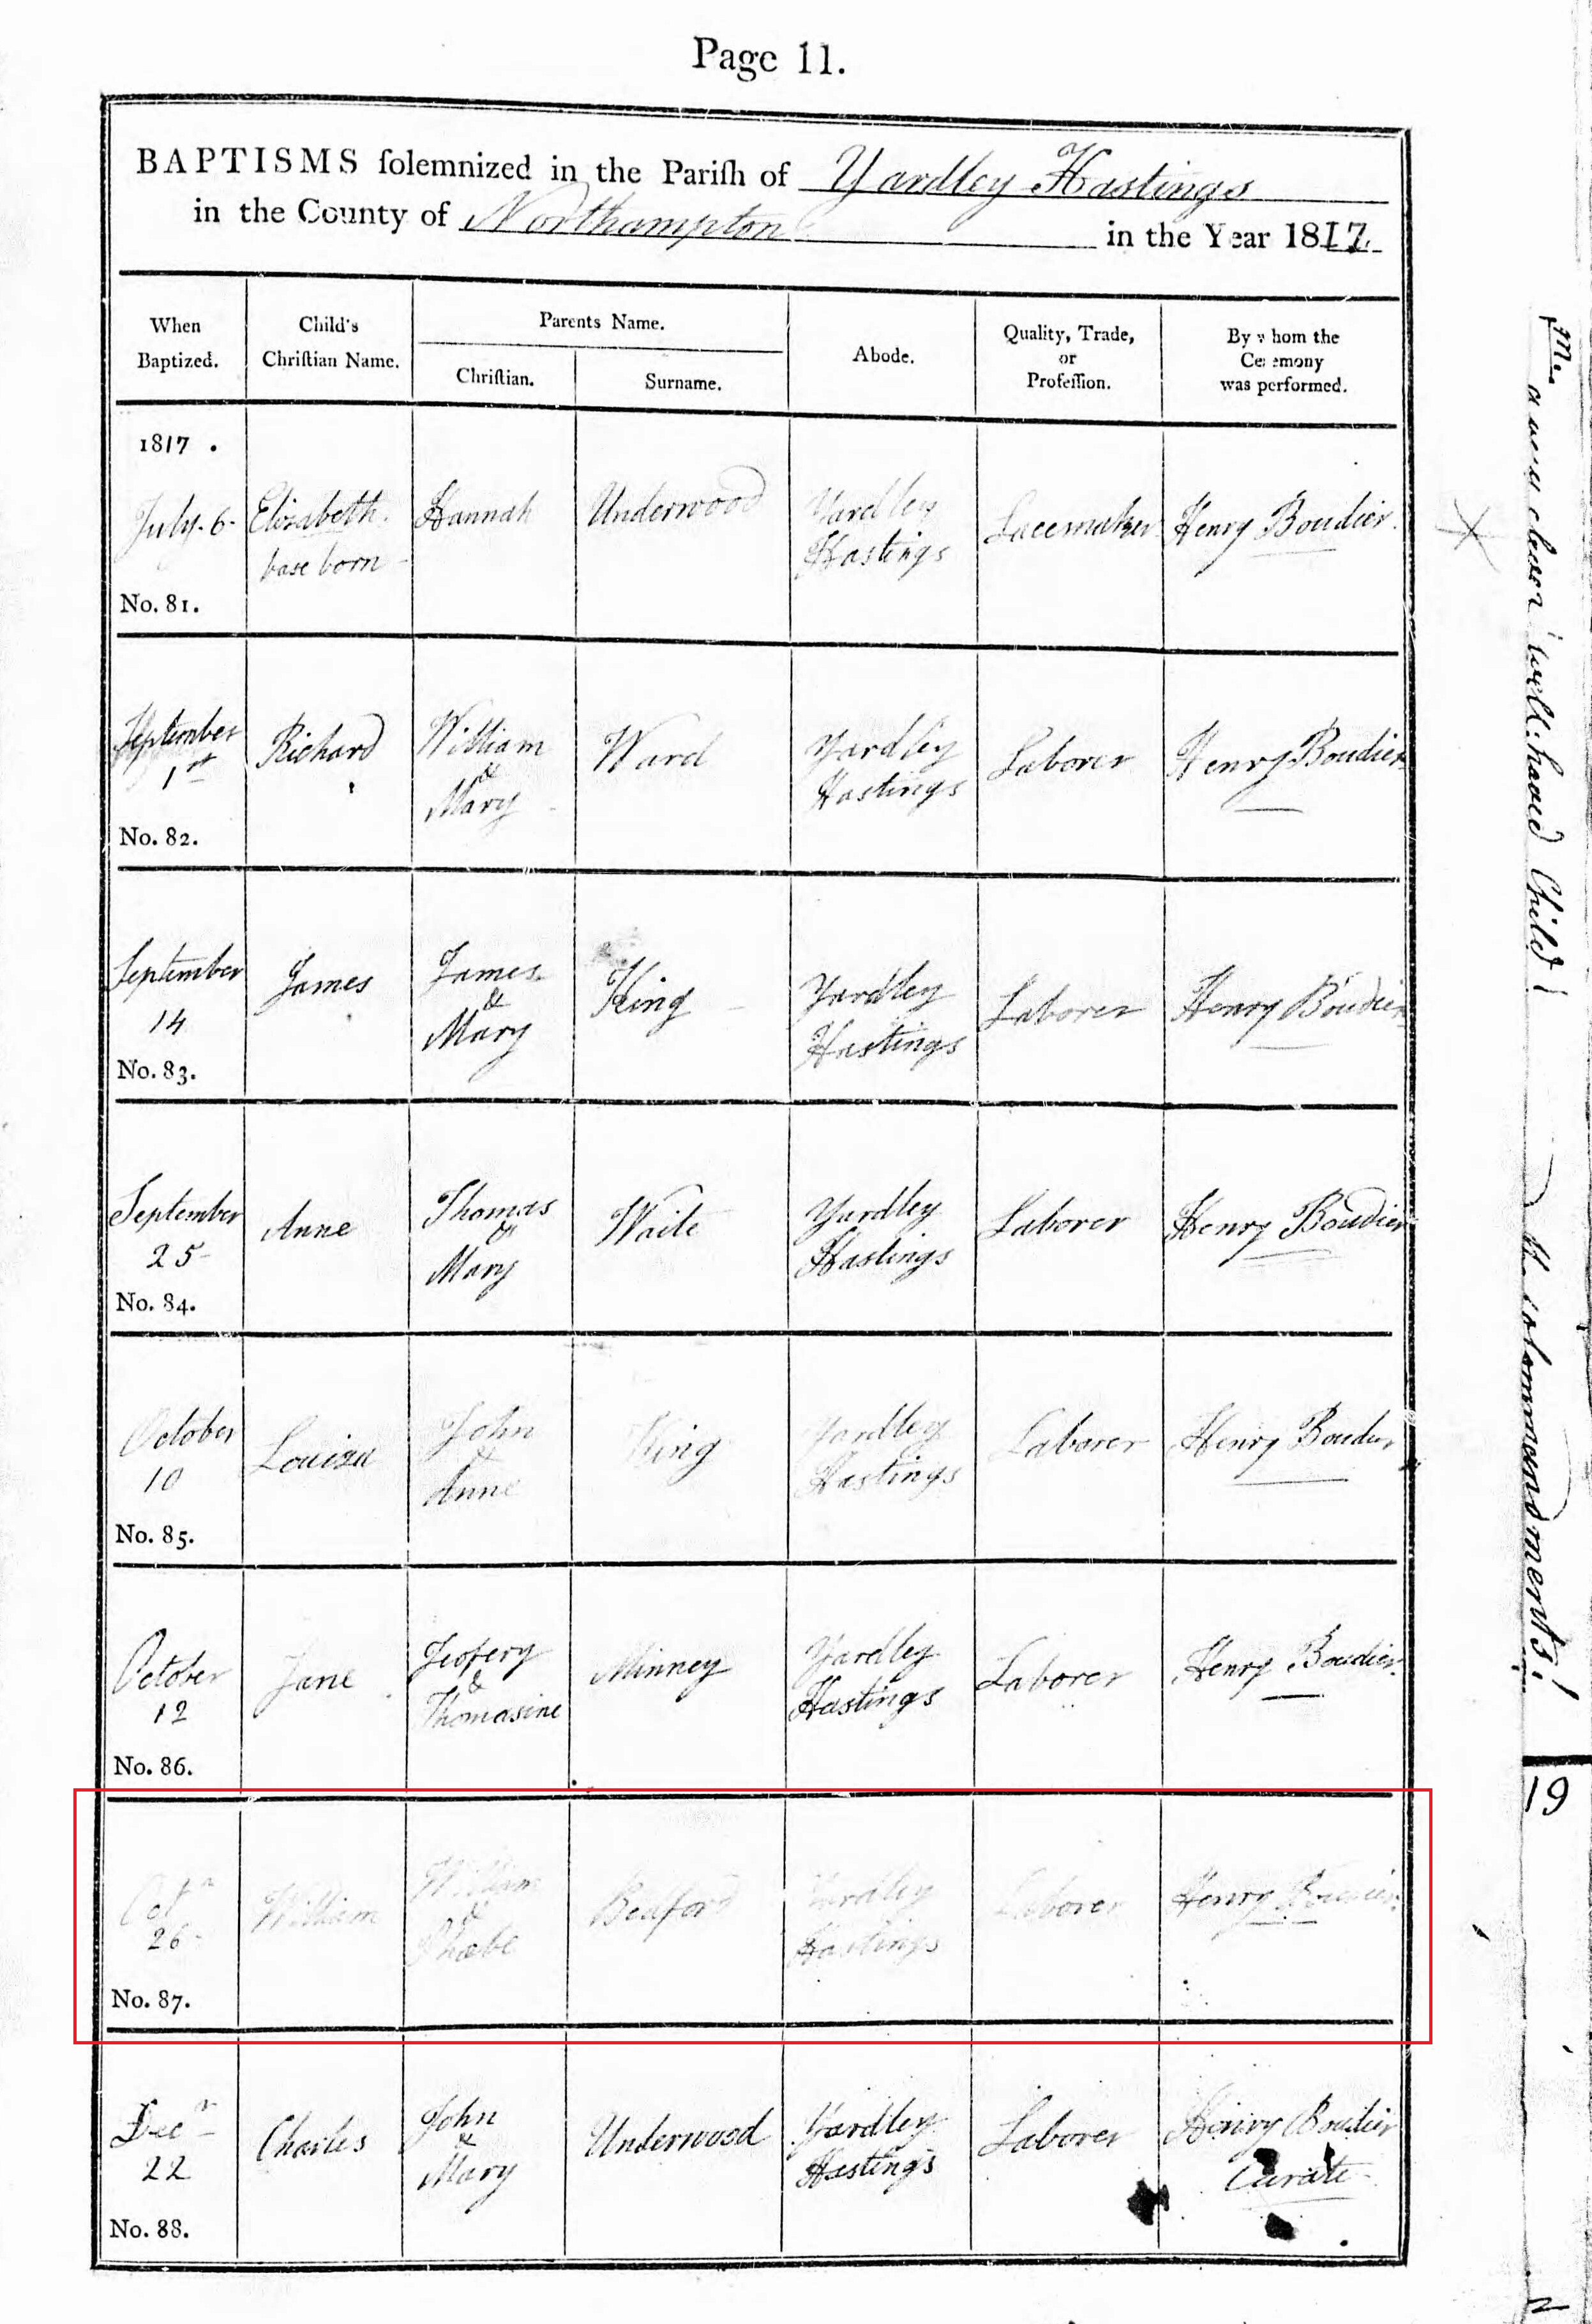 Page 11.
BAPTISMS ſolemnized in the Pariſh of Yardley Hastings
in the County of Northampton in the Year 1817.
When
Baptized.
Child's
Chriſtian Name.
Parents Name.
Chriſtian.
Surname.
Abode.
Quality, Trade,
or
Profeſſion.
By whom the
Ceremony
was performed.
1817.
July 6
No. 81.
Elizabeth.
base born
Hannah
Underwood
Yardley
Hastings
Lacemaker
Henry Boudier.
September
1st
No. 82.
Richard
William
&
Mary
Ward
Yardley
Hastings
Laborer
Henry Boudier
September
14
No. 83.
James
James
&
Mary
King
Yardley
Hastings
Laborer
Henry Boudier
September
25
No. 84.
Anne
Thomas
&
Mary
Waite
Yardley
Hastings
Laborer
Henry Boudier
October
10
No. 85.
Louiza
John
&
Anne
King
Yardley
Hastings
Laborer
Henry Boudier
October
12
No. 86.
Jane
Jeofery
&
Thomasine
Minney
Yardley
Hastings
Laborer
Henry Boudier.
Octr
26
No. 87.
William
William
&
Phœbe
Bedford
Yardley
Hastings
Laborer
Henry Boudier.
Decr
22
No. 88.
Charles
John
&
Mary
Underwood
Yardley
Hastings
Laborer
Henry Boudier
Curate
a very clever well-haved Child!
commandments!
19